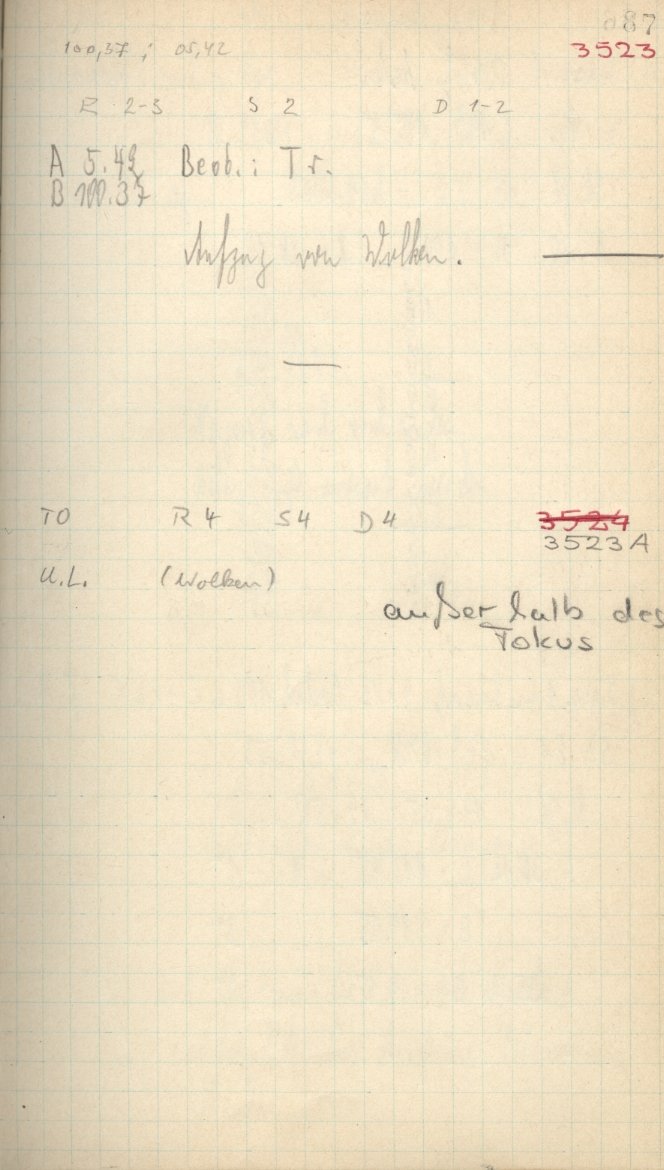 87
100,37 ; 05,42 3523
R 2-3 S 2 D 1-2
A 5.42 Beob.: Tr.
B 100.37
Aufzug von Wolken.
TO R 4 S 4 D 4 3524
3523A
U.L. (Wolken)
außerhalb des
Fokus